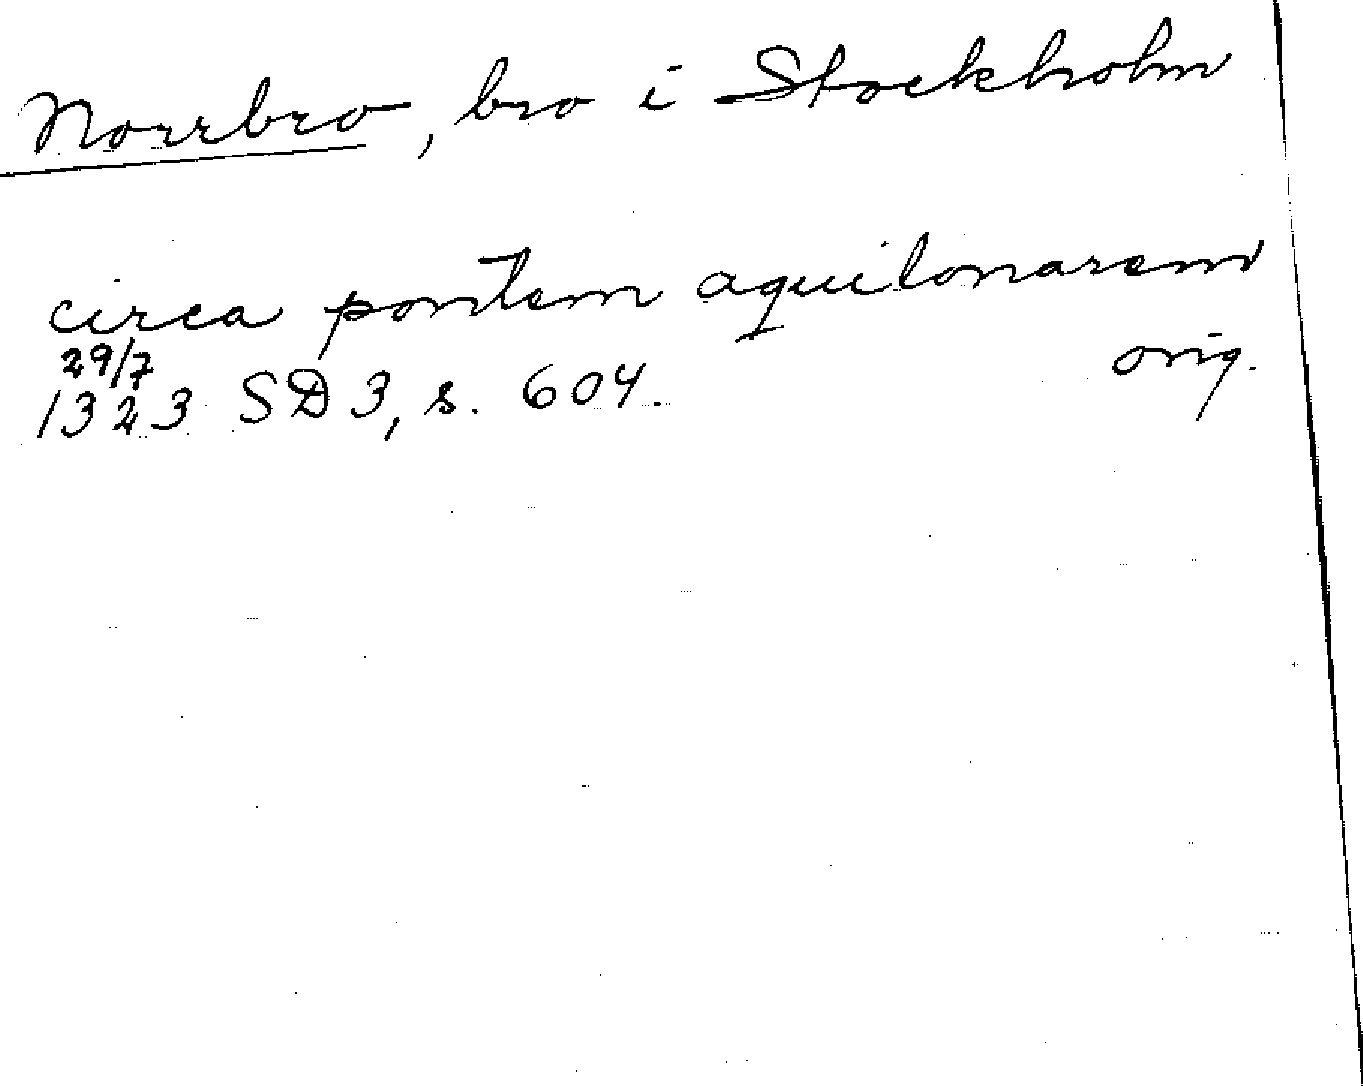 Norrbro, bro i Stockholm
circa pontem aquilonarem
29/7 orig.
1323 SD 3, s. 604.